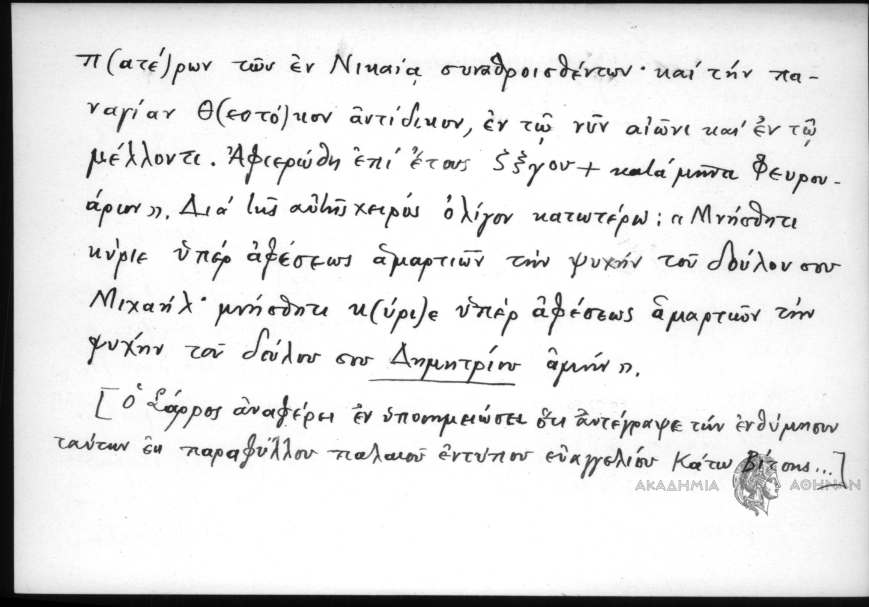 π(ατέ)ρων τῶν ἐν Νικαίᾳ συναθροισθέντων· καί τήν πα-
ναγίαν Θ(εοτό)κον ἀντίδικον, ἐν τῷ νῦν αἰῶνι καί ἐν τῷ
μέλλοντι. Ἀφιερώθη ἐπί ἔτους ζξγου + κατά μῆνα Φευρου-
άριον». Διά τῆς αὐτῆς χειρός ὀλίγον κατωτέρω: «Μνήσθητι
κύριε ὑπέρ ἀφέσεως ἁμαρτιῶν τήν ψυχήν τοῦ δούλου σου
Μιχαήλ· μνήσθητι κ(ύρι)ε ὑπέρ ἀφέσεως ἁμαρτιῶν τήν
ψυχήν τοῦ δούλου σου Δημητρίου ἀμήν».
[Ὁ Σάρρος ἀναφέρει ἐν ὑποσημειώσει ὅτι ἀντέγραψε τήν ἐνθύμησιν
ταύτην ἐκ παραφύλλου παλαιοῦ ἐντύπου εὐαγγελίου Κάτω Βίτσης...]
ΑΚΑΔΗΜΙΑ ΑΘΗΝΩΝ